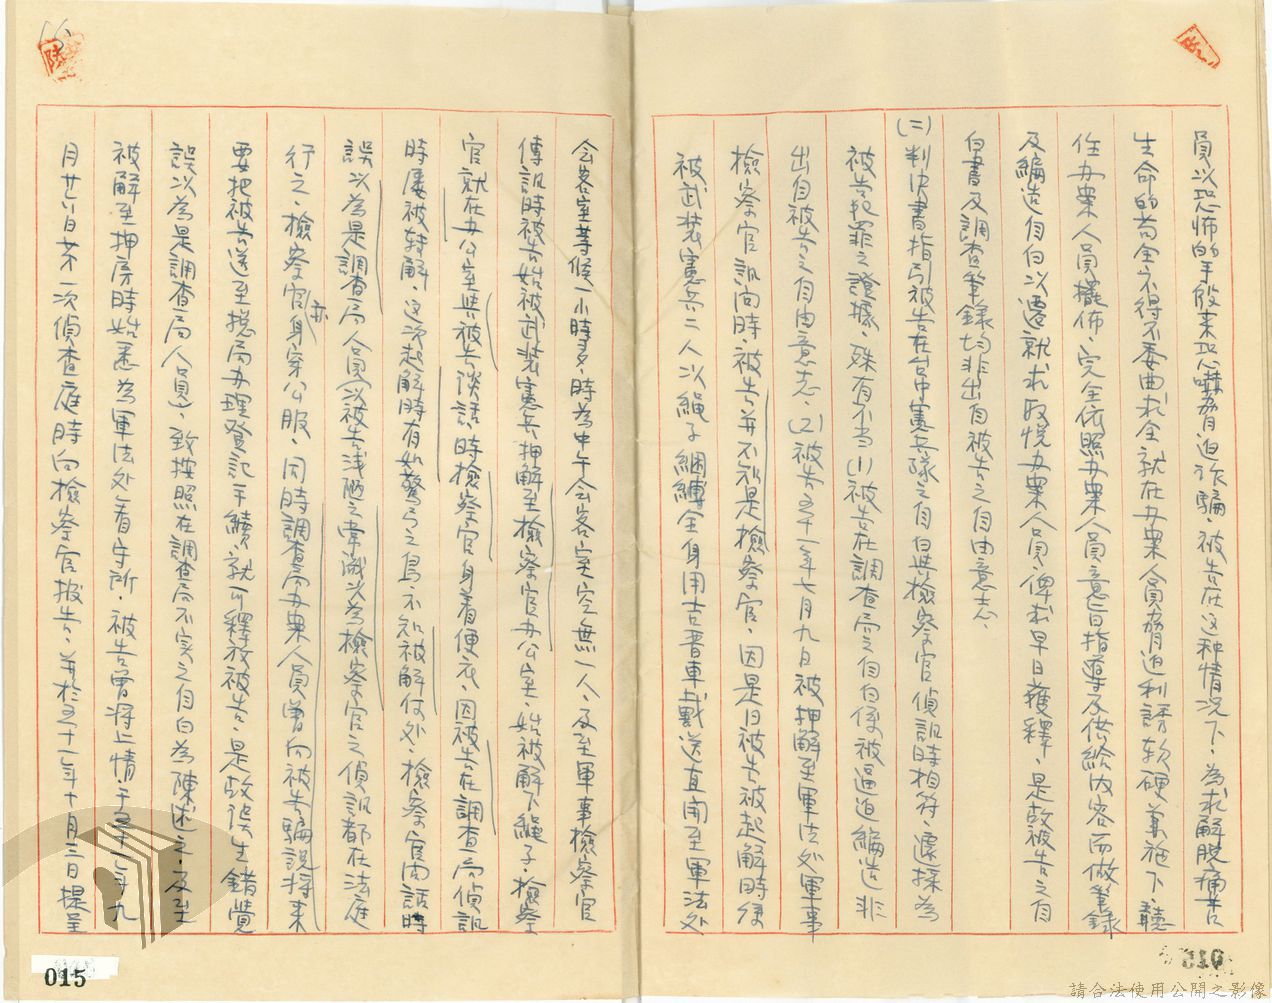 員以恐怖的手段來恐嚇脅迫诈騙，被告在这种情况下，為求解脫痛苦
生命的苟全不得不委曲求全就在办案人員脅迫利誘软硬兼施下，聽
任办案人員擺佈，完全依照办案人員意旨指導及供給內容而做筆錄
及編造自白以遷就求取悅办案人員俾求早日獲釋，是故被告之自
白書及調查筆錄均非出自被告之自由意志。
(二)判决書指引被告在台中憲兵隊之自白与檢察官偵訊時相符，遽採為
被告犯罪之證據，殊有不当(1)被告在調查局之自白係被逼迫編造非
出自被告之自由意志，(2)被告五十一年七月九日被押解至軍法处軍事
檢察官訊问時，被告并不知是檢察官，因是日被告被起解時係
被武装憲兵二人以繩子綑縛全身用吉普車載送直開至軍法处
会客室等候一小時多，時為中午会客室空無一人，及至軍事檢察官
傳訊時被告始被武裝憲兵押解至檢察官办公室，始被解下繩子，檢察
官就在办公室與被告谈話，時檢察官身着便衣，因被告在調查局偵訊
時屢被转解，这次起解時有如驚弓之鳥不知被解何处，檢察官问話時
誤以為是調查局人員(以被告浅陋之常識以為檢察官之偵訊都在法庭
行之，檢察官亦身穿公服，同時調查局办案人員曾向被告騙說将来
要把被告送至總局办理登記手續就可釋放被告，是故發生錯覺
誤以為是調查局人員)，致按照在調查局不实之自白為陳述之，及至
被解至押房時始悉為軍法处看守所，被告曾将上情于五十一年九
月廿八日第一次偵查庭時向檢察官报告，并於五十一年十月三日提呈
015
請合法使用公開之影像